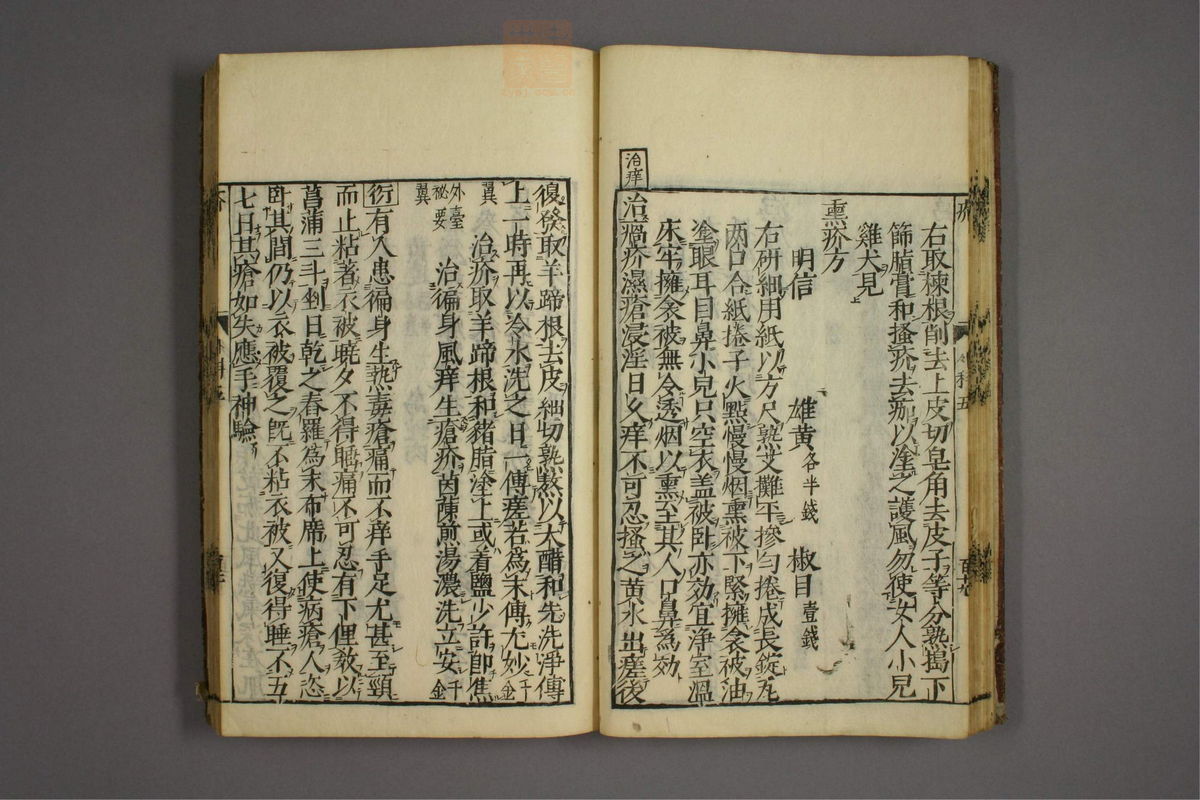 右取楝根削去上皮切皂角去皮子等分熟搗下
篩脂膏和搔疥去痂以塗之護風勿使女人小兒
雞犬見
熏疥方
明信 雄黃各半錢 椒目壹錢
右研細用紙以方尺熟艾攤平摻勻捲成長錠先
兩口合紙捲子火點慢慢烟熏被下緊擁衾被油
塗眼耳目鼻小兒只空衣盖被卧亦効宜浄室溫
床牢擁衾被無令透烟以熏至其人口鼻為効
治痒
治癬疥濕瘡浸淫日久痒不可忍搔之黄水出瘥後
復發取羊蹄根去皮細切熟熬以大醋和先洗淨傅
上一時再以冷水洗之日一傅瘥若為末傅尤妙千金
翼
治疥取羊蹄根和豬脂塗上或着鹽少許即焦
外臺
秘要
治徧身風痒生瘡疥茵蔯煎湯濃洗立安千金
翼
衍有人患徧身生熱毒瘡痛而不痒手足尤甚至頸
而止粘著衣被曉夕不得睡痛不可忍有下俚教以
菖蒲三斗剉日乾之舂羅為末布席上使病瘡人恣
卧其間仍以衣被覆之既不粘衣被又復得睡不五
七日其瘡如失應手神驗